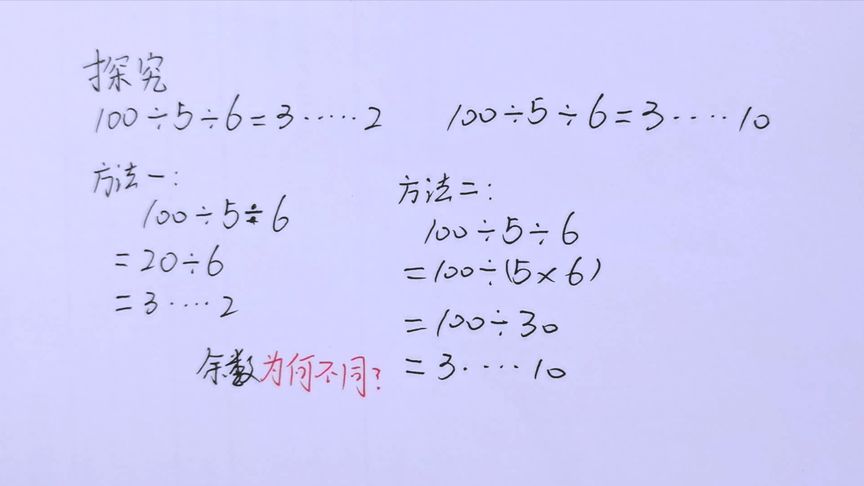 探究
100÷5÷6=3·····2
100÷5÷6=3····10
方法一:
100÷5÷6
=20÷6
=3····2
方法二:
100÷5÷6
=100÷(5×6)
=100÷30
=3·····10
余数为何不同?